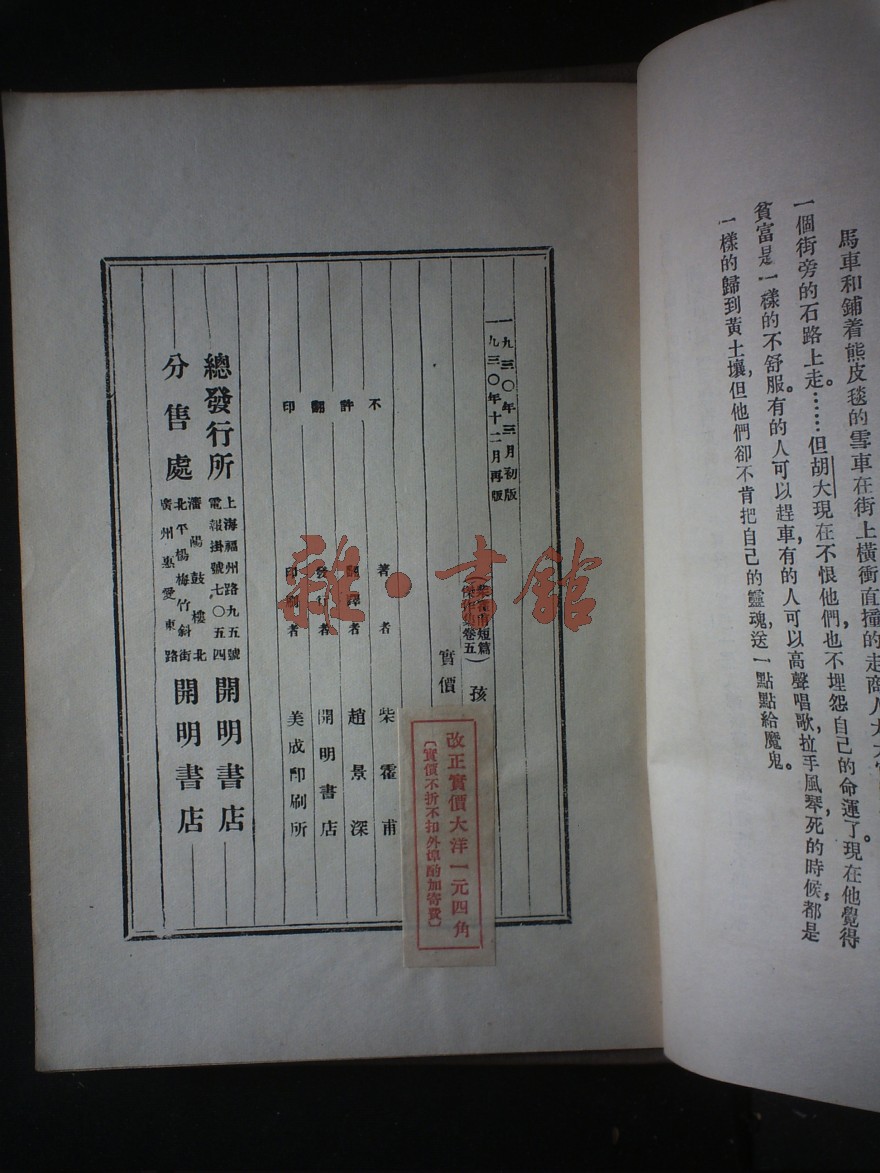 馬車和鋪着熊皮毯的雪車在街上橫衝直撞的走商人大
一個街旁的石路上走。……但胡大現在不恨他們，也不埋怨自己的命運了現在他覺得
貧富是一樣的不舒服。有的人可以趕車有的人可以高聲唱歌，拉手風琴死的時候都是
一樣的歸到黃土壤，但他們卻不肯把自己的靈魂送一點點給魔鬼。
一九三〇年三月初版
一九三〇年十二月再版
（柴霍甫短篇傑作集卷五）孩
實價
改正實價大洋一元四角
〔實價不折不扣外埠酌加寄費〕
不許翻印
著者 柴霍甫
翻譯者 趙景深
發行者 開明書店
印刷者 美成印刷所
總發行所 上海福州路九五號 電報掛號七〇五四 開明書店
分售處 瀋陽鼓樓北 北平楊梅竹斜街 廣州惠愛東路 開明書店
雜·書館